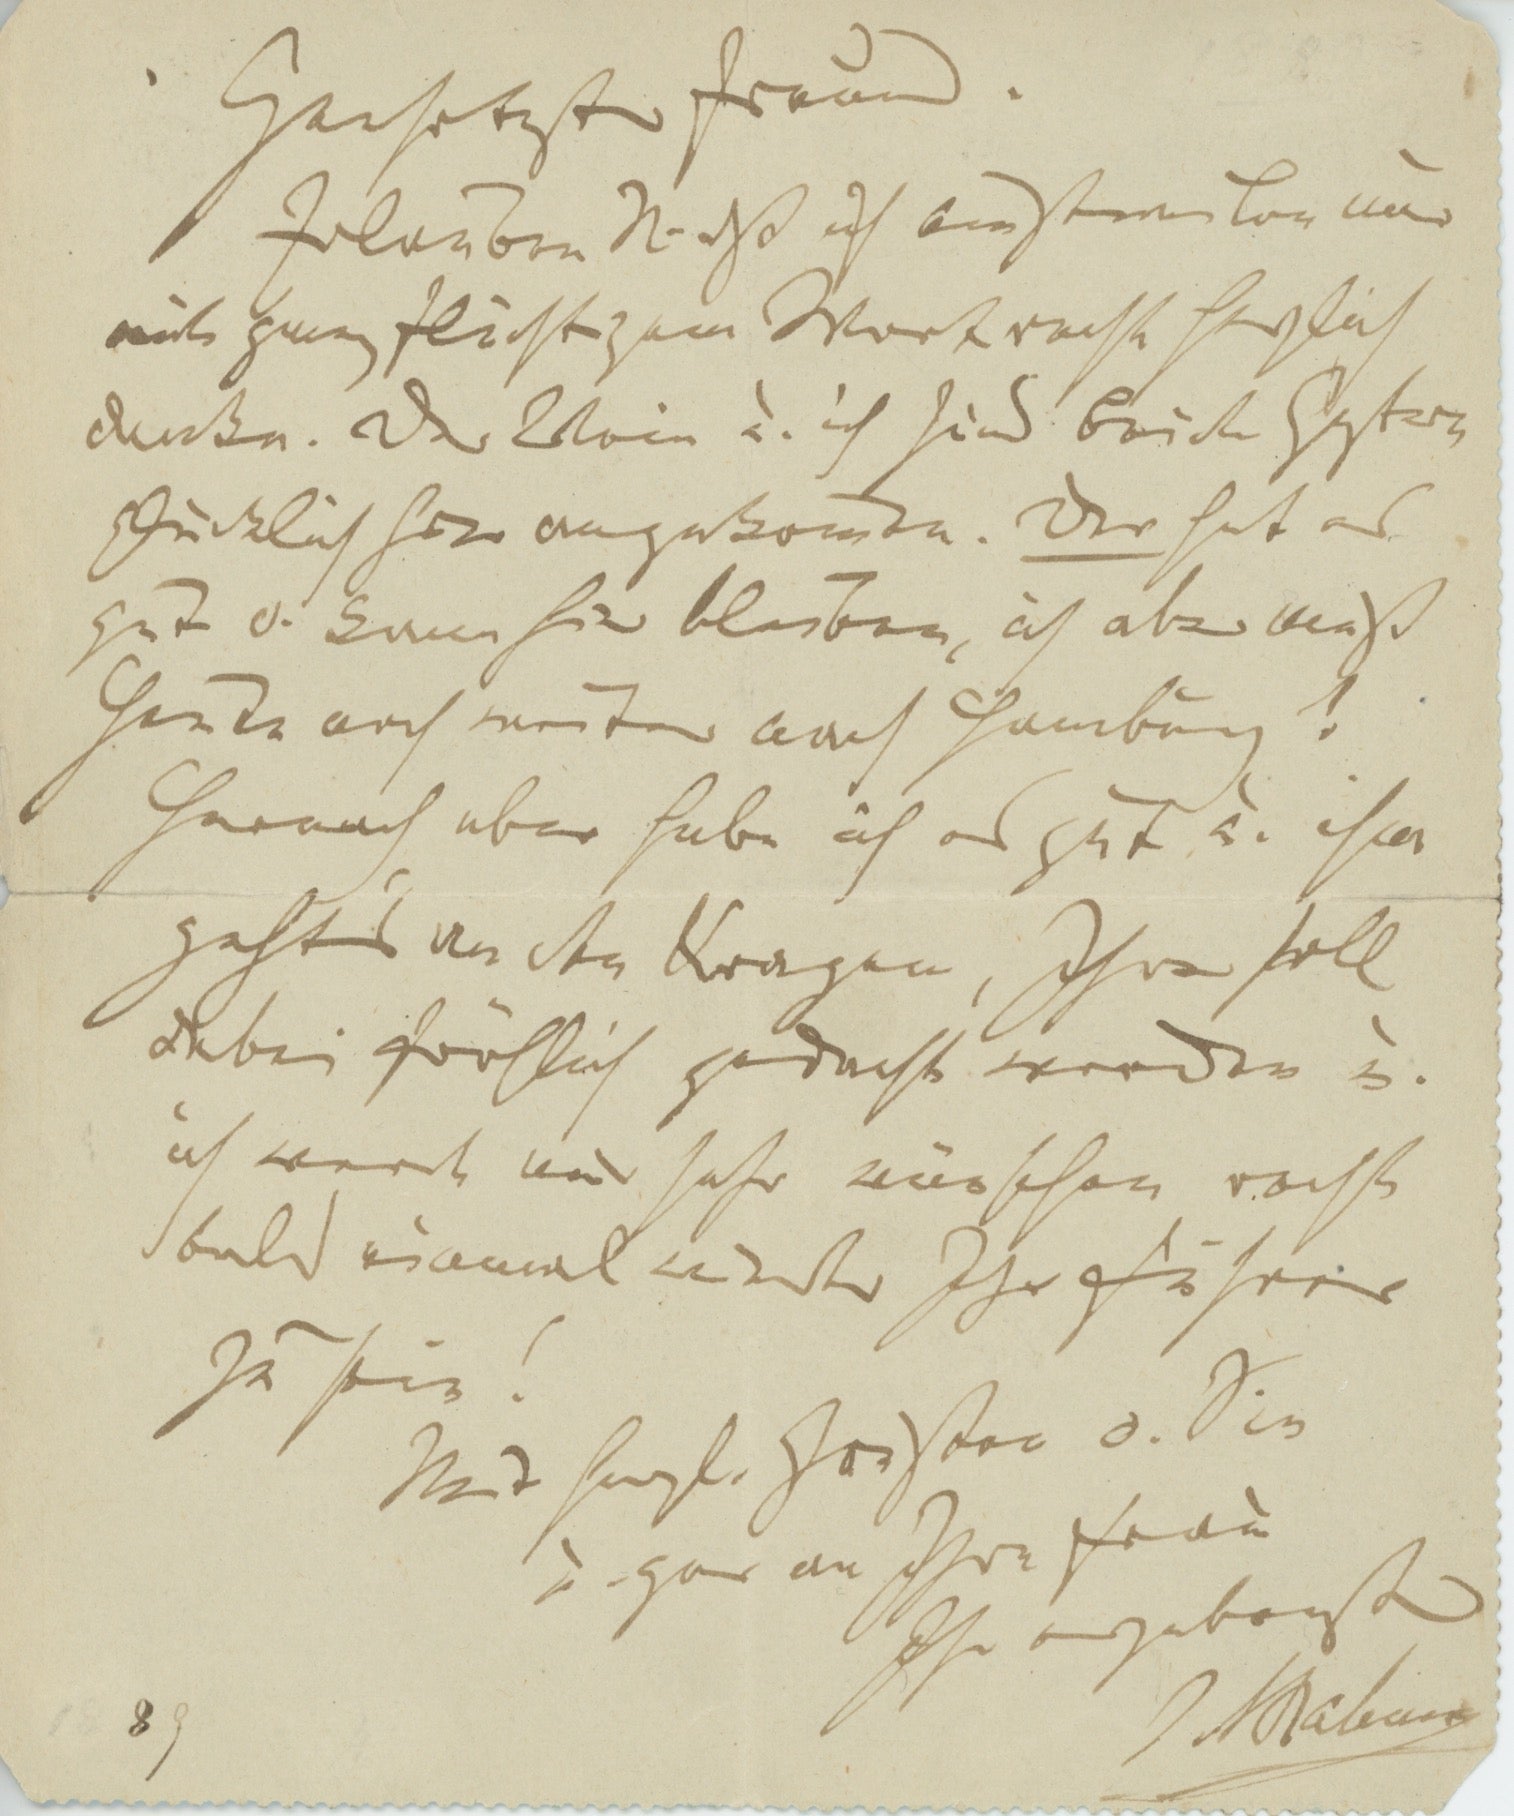 Geehrtester Freund.
Erlauben Sie daß ich einstweilen nur
mit ganz flüchtigem Wort recht herzlich
danke. Der Wein u. ich sind beide gestern
glücklich hier angekommen. Der hat es
gut u. kann hier bleiben, ich aber muß
heute noch weiter nach Hamburg!
Hernach aber habe ich es gut u. ihm
geht's an den Kragen, Ihrer soll
dabei fröhlich gedacht werden u.
ich werde nur sehr wünschen recht
bald einmal wieder Ihr
zu sein!
Mit herzl. Grüßen a. Sie
u. gar an Ihre Frau
Ihr ergebenster
J. Brahms
89